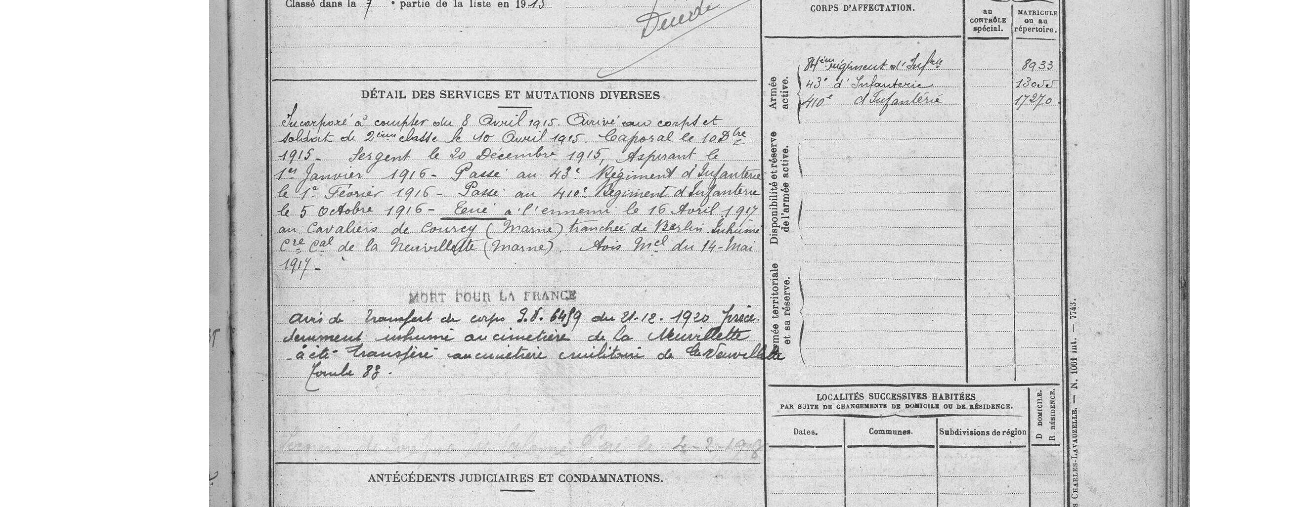 Classé dans la 7 e partie de la liste en 1915
Décédé
DÉTAIL DES SERVICES ET MUTATIONS DIVERSES
Incorporé à compter du 8 Avril 1915. Arrivé au corps et
soldat de 2ème classe le 10 Avril 1915. Caporal le 10 Bre
1915 - Sergent le 20 Décembre 1915, Aspirant le
1er Janvier 1916 - Passé au 43e Régiment d'Infanterie
le 1er Février 1916 - Passé au 410e Régiment d'Infanterie
le 5 Octobre 1916 - Tué à l'ennemi le 16 Avril 1917
au Cavaliers de Courcy (Marne) tranchée de Berlin. Inhumé
Cre Cal de la Neuvillette (Marne). Avis Mel du 14-Mai
1917 -
MORT POUR LA FRANCE
avis de transfert de corps 6459 du 21-12-1920 précé-
demment inhumé au cimetière de la Neuvillette
à été transféré au cimetière militaire de la Neuvillette
Tombe 83.
4-2-19
ANTÉCÉDENTS JUDICIAIRES ET CONDAMNATIONS.
CORPS D'AFFECTATION.
au
CONTRÔLE
spécial.
MATRICULE
ou au
répertoire.
Armée
active.
régiment d'Infie 8933
43e d'Infanterie
410e d'Infanterie 17270
Disponibilité et réserve
de l'armée active.
Armée territoriale
et sa réserve.
LOCALITÉS SUCCESSIVES HABITÉES
PAR SUITE DE CHANGEMENTS DE DOMICILE OU DE RÉSIDENCE.
Dates.
Communes.
Subdivisions de région
D DOMICILE.
R RÉSIDENCE.
CHARLES-LAVAUZELLE. — N. 1061 int. — 7743.